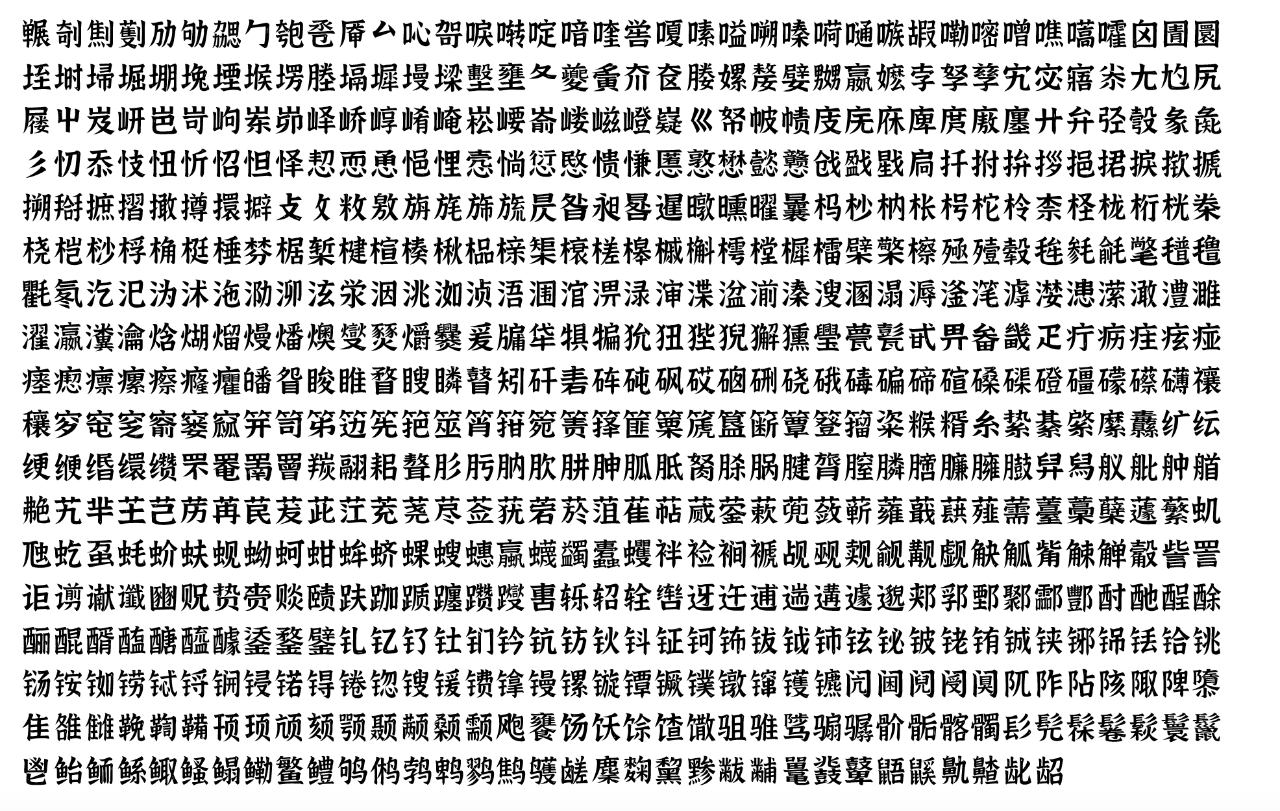 冁剞劁劐劢劬勰勹匏卺厣厶吣哿唳啭啶喑喹喾嗄嗉嗌嗍嗪嗬嗵嗾嘏嘞嘧噌噍嚆嚯囟圊圜
垤埘埽堀堋堍堙堠塄塍塥墀墁墚壑壅夂夔夤夼奁媵嫘嫠嬖嬲嬴嬷孛孥孳宄宓寤尜尢尥尻
屐屮岌岍岜岢岣岽峁峄峤崞崤崦崧崾嵛嵝嵫嶝嶷巛帑帔帻庋庑庥庳庹廒廛廾弁弪彀彖彘
彡忉忝忮忸忻怊怛怿恝恧恿悒悝悫惝愆愍愦慊慝憝懋懿戆戗戬戥扃扦拊拚拶挹捃捩揿搋
搠搿摭摺撖撙擐擗攴攵敉敫旃旄旆旒昃昝昶晷暹暾曛曜曩杩杪枘枨枵柁柃柰柽栊桁桄桊
桡桤桫桴桷梃棰棼椐椠楗楦楱楸榀榇榘榱槎槔槭槲樗樘樨橹檗檠檫殛殪毂毪毵毹氅氆氇
氍氡汔汜沩沭沲泐泖泫泶洇洮洳浈浯涠涫淠渌渖渫湓湔溱溲溷溻溽滏滗滹漤漶潆潋澧濉
濯瀛瀵瀹焓煳熘熳燔燠燮燹爝爨爰牖牮犋犏犰狃狴猊獬獯璺甍甏甙畀畚畿疋疔疬疰痃痖
瘗瘛瘭瘰瘵癃癯皤眢睃睢瞀瞍瞵瞽矧矸砉砗砘砜砹硇硎硗硪碡碥碲碹磉磲磴礓礞礤礴禳
穰穸窀窆窬窭窳笄笥笫笾筅筢筮筲箝箢箦箨篚篥篪簋簖簟簦籀粢糇糈糸絷綦綮縻纛纩纭
绠缏缗缳缵罘罨罱罾羰翮耜聱肜肟肭肷胼胂胍胝胬脎脶腱膂膣膦膪臁臃臌舁舄舣舭舯艏
艴艽芈芏芑苈苒苠茇茈茳茺荛荩莶莸菪菸菹萑萜葳蓥蔌蔸蔹蕲蕹蕺蕻薤薷薹藁蘖蘧蘩虮
虺虼虿蚝蚧蚨蚬蚴蚵蚶蛑蛴蜾螋螅蠃蠛蠲蠹蠼袢裣裥褫觇觋觌觎觏觑觖觚觜觫觯觳訾詈
讵谫谳谶豳贶贽赉赕赜趺跏踬躔躜躞軎轹轺轾辔迓迕逋遄遘遽邈郏郛郢鄹酃酆酎酏酲酴
酾醌醑醢醣醯醵銎鍪鐾钆钇钌钍钔钤钪钫钬钭钲钶钸钹钺钼铉铋铍铑铕铖铗铘铞铥铪铫
铴铵铷铹铽锊锎锓锘锝锩锪锼锾镄镎镘镙镟镡镢镤镦镩镬镳闶阃阄阌阒阢阼阽陔陬陴隳
隹雒雠鞔鞫鞴顸顼颀颏颚颞颟颡颥飑饔饧饫馀馇馓驵骓骘骟骣骱骺髂髑髟髡髹鬈鬏鬟鬣
鬯鲐鲕鲧鲰鳋鳎鳓鳖鳢鸲鸺鹁鹎鹨鹪鹱鹾麇麹黧黪黻黼鼍鼗鼙鼯鼷鼽齄龀龆